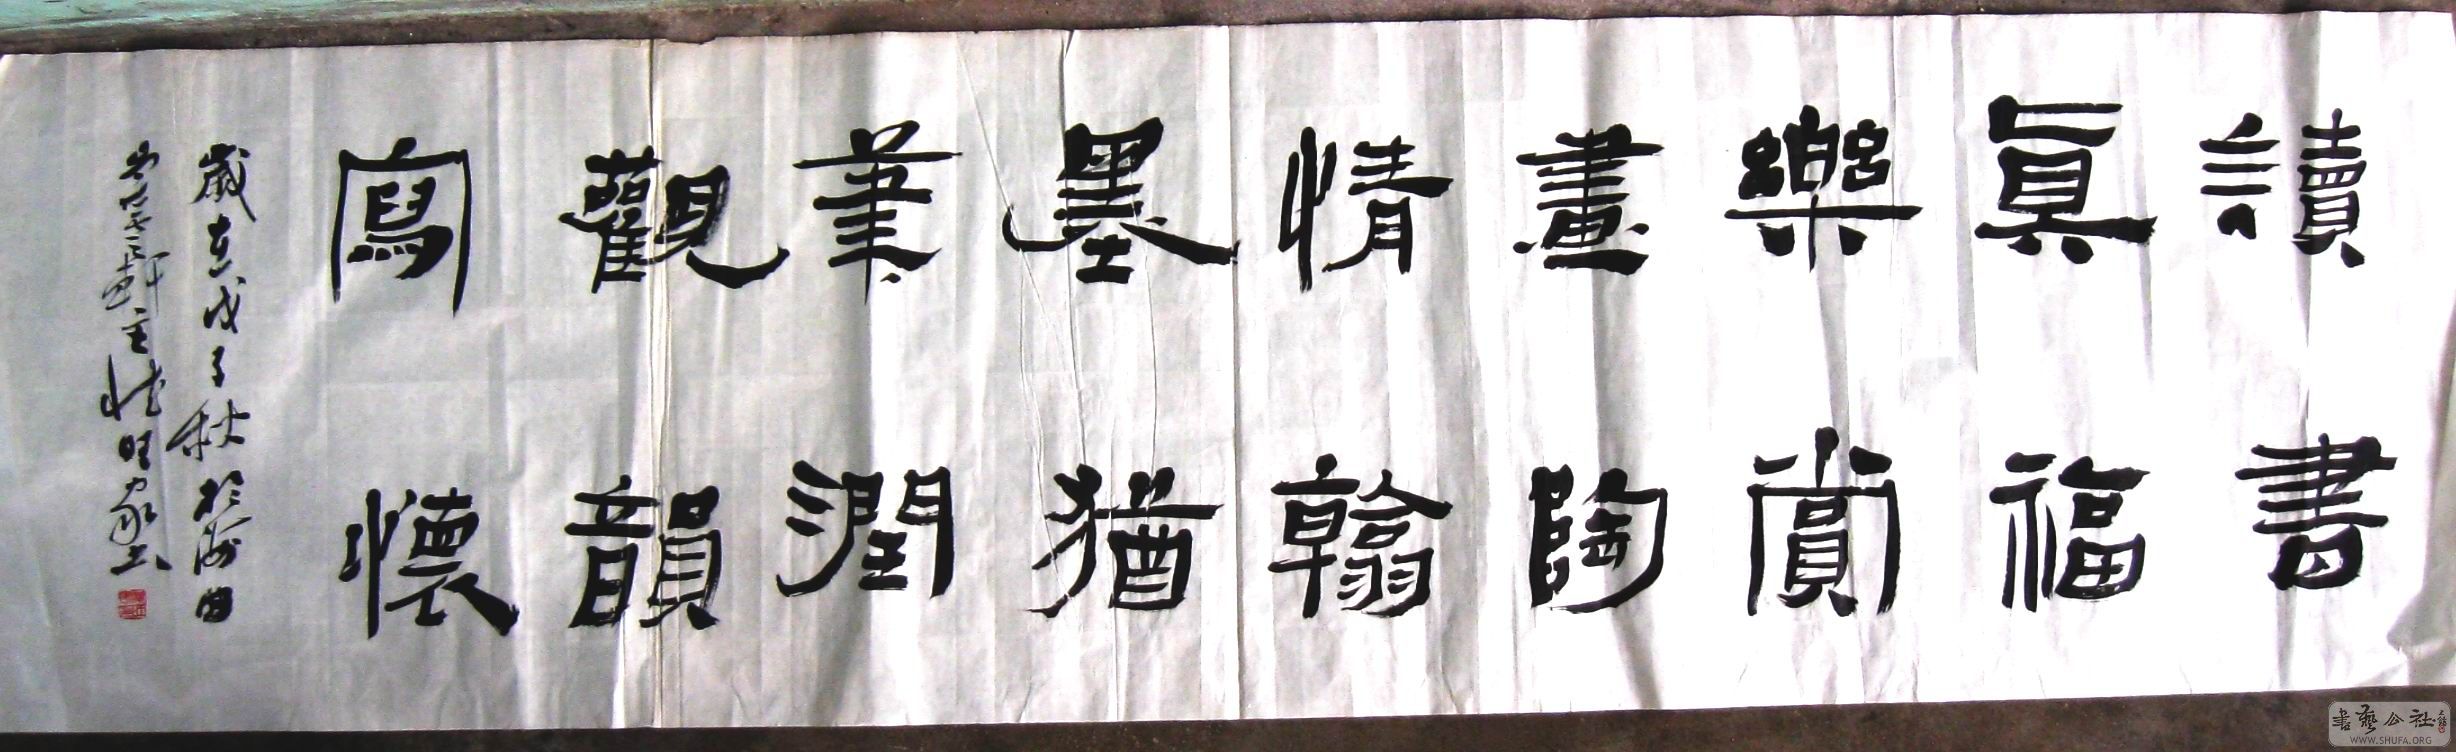 讀書
眞福
樂賞
畫陶
情翰
墨猶
筆潤
觀韻
寫懷
歲在戊子秋於海曲
軒主
書藝公社
WWW.SHUFA.ORG